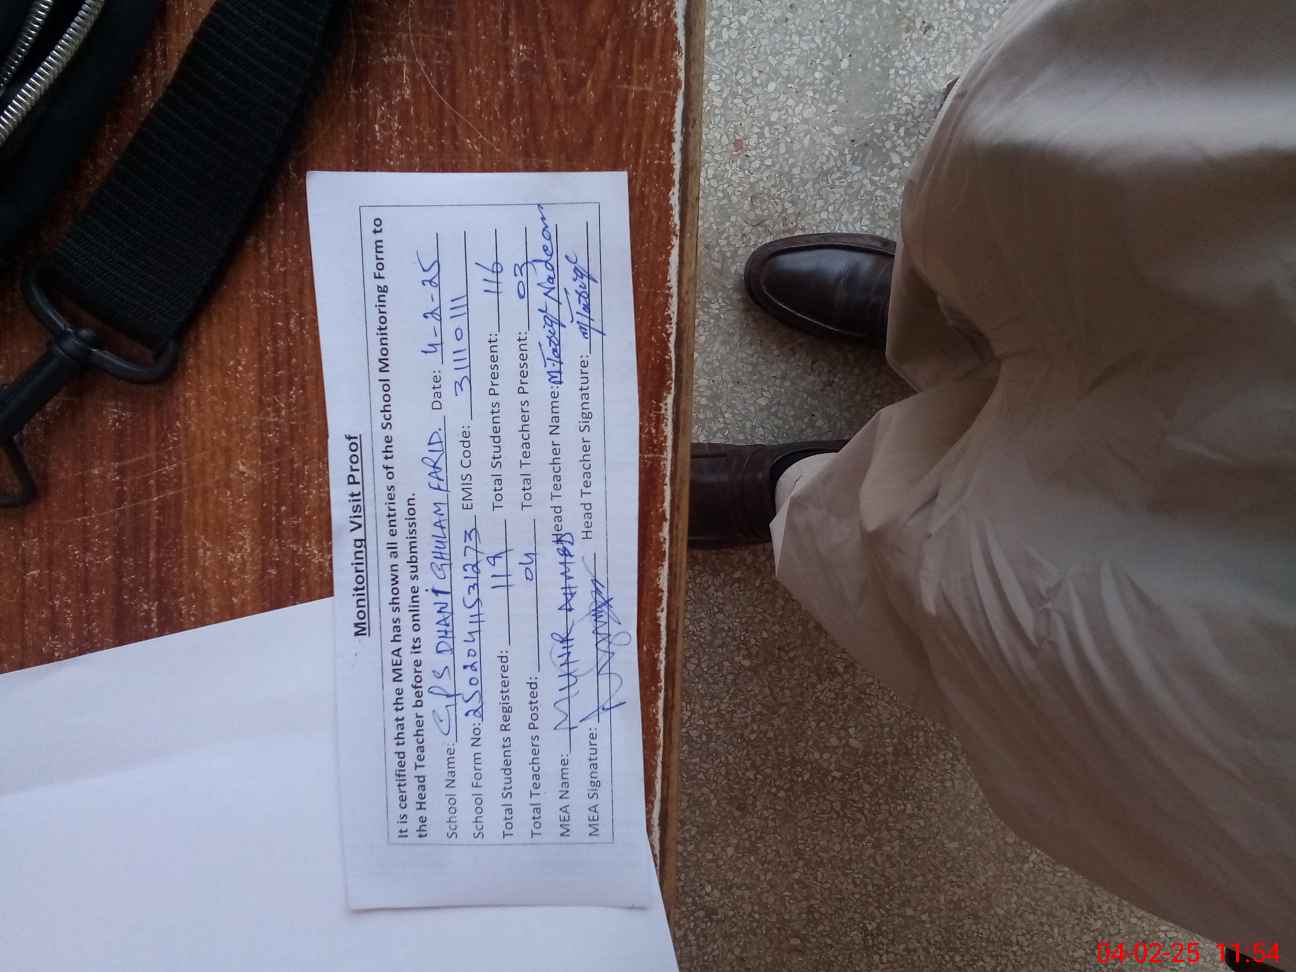 Monitoring Visit Proof
It is certified that the MEA has shown all entries of the School Monitoring Form to
the Head Teacher before its online submission.
School Name: GPS DHANI GHULAM FARID. Date: 4-2-25
School Form No: 25020411531273 EMIS Code: 31110111
Total Students Registered: 119 Total Students Present: 116
Total Teachers Posted: 04 Total Teachers Present: 03
MEA Name: MUNIR AHMED Head Teacher Name: M. Tariq Nadeem
MEA Signature: Head Teacher Signature: M Tariq
04-02-25 11:54